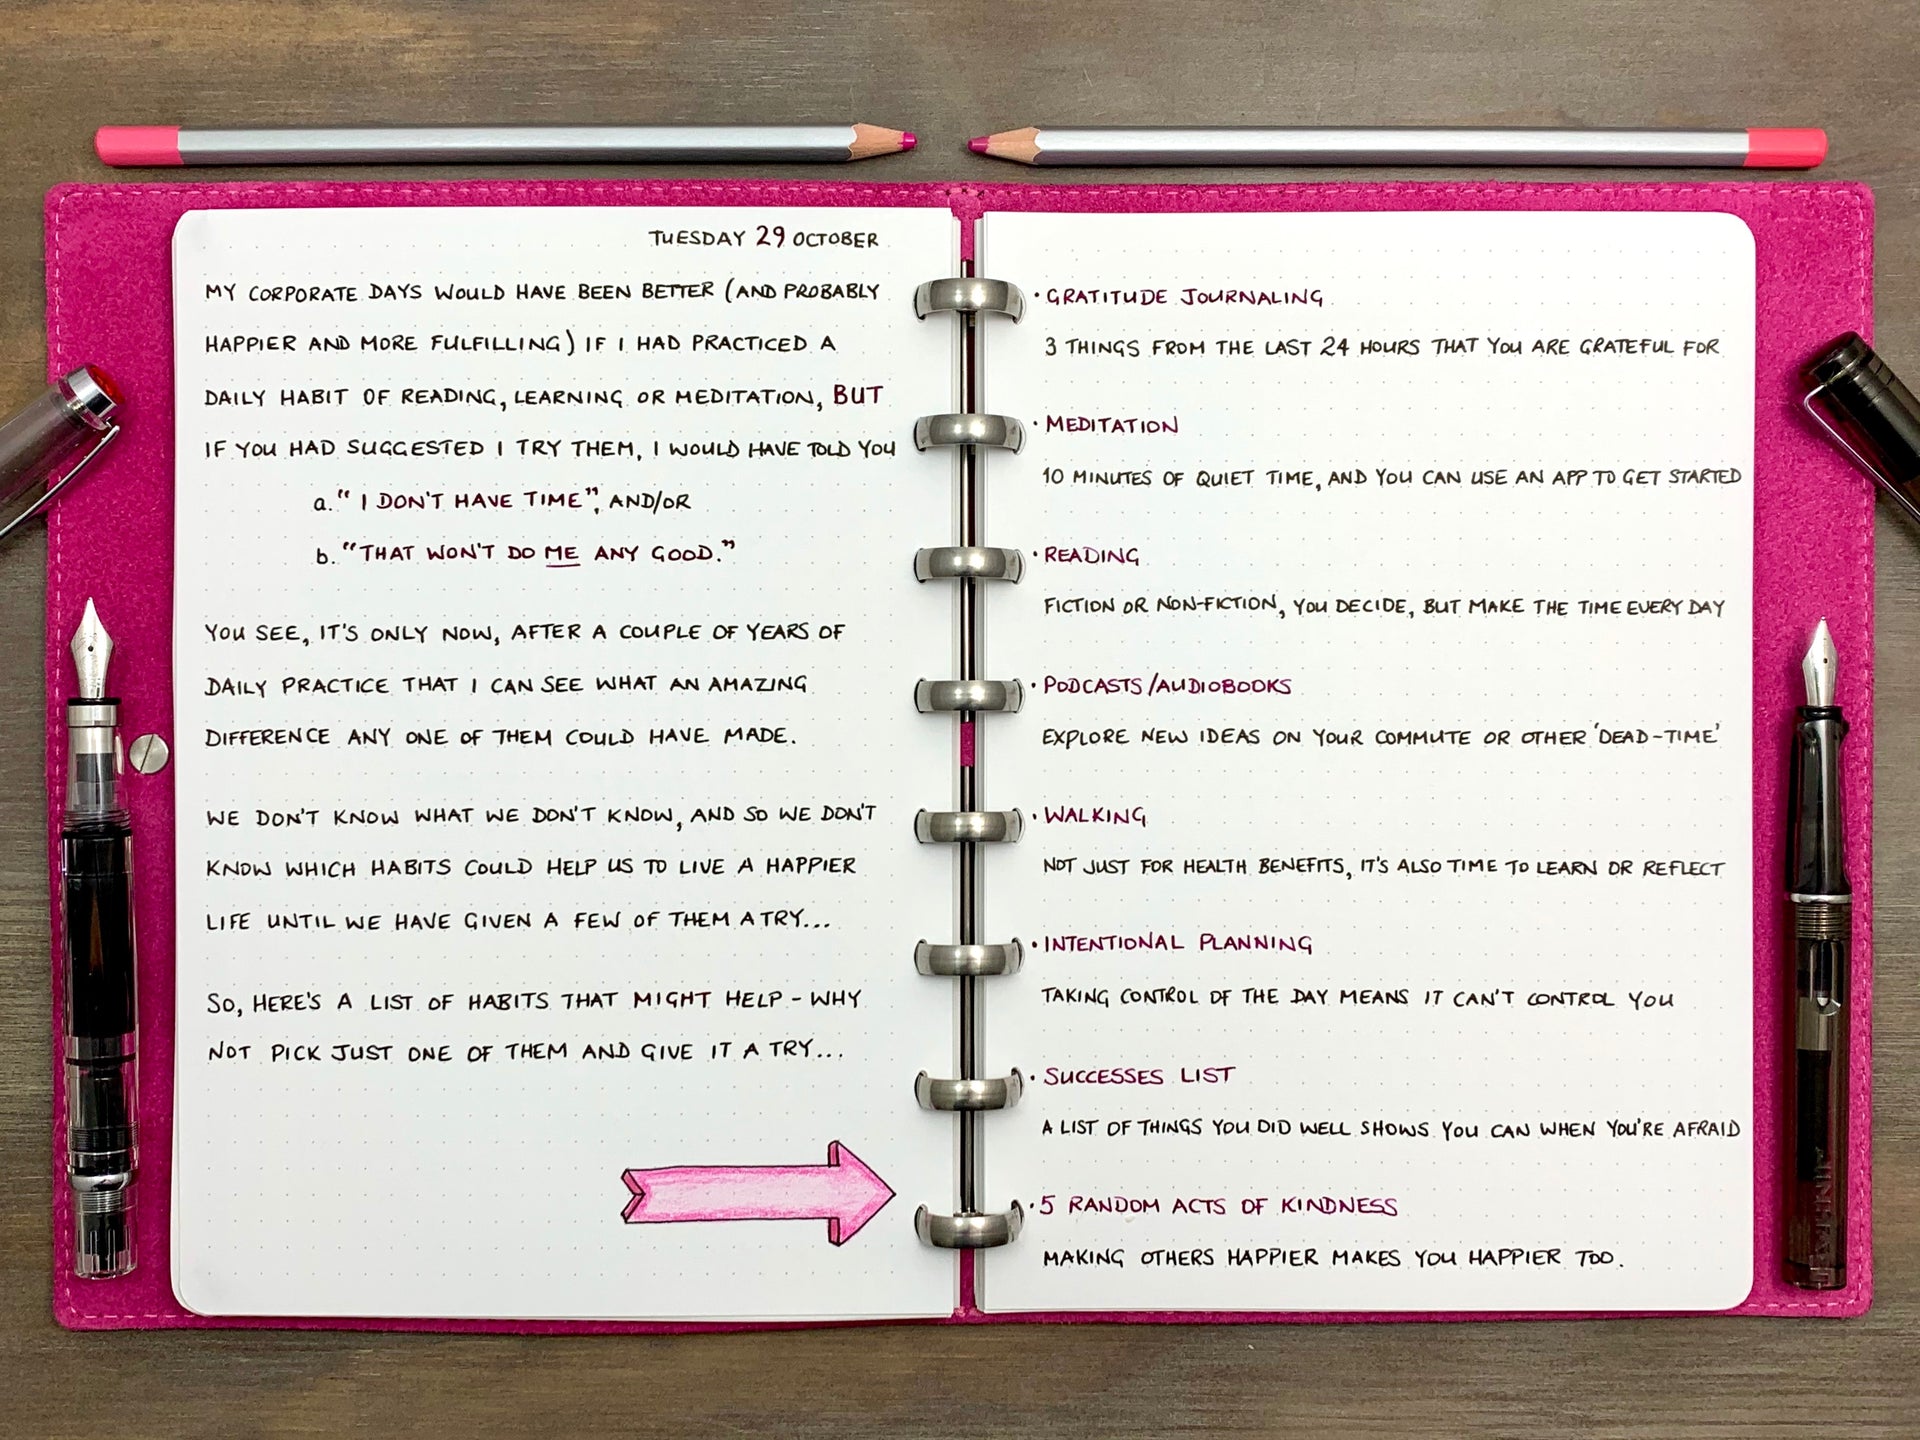 TUESDAY 29 OCTOBER
MY CORPORATE DAYS WOULD HAVE BEEN BETTER (AND PROBABLY
HAPPIER AND MORE FULFILLING) IF I HAD PRACTICED A
DAILY HABIT OF READING, LEARNING OR MEDITATION, BUT
IF YOU HAD SUGGESTED I TRY THEM, I WOULD HAVE TOLD YOU
a. "I DON'T HAVE TIME", AND/OR
b. "THAT WON'T DO ME ANY GOOD."
YOU SEE, IT'S ONLY NOW, AFTER A COUPLE OF YEARS OF
DAILY PRACTICE THAT I CAN SEE WHAT AN AMAZING
DIFFERENCE ANY ONE OF THEM COULD HAVE MADE.
WE DON'T KNOW WHAT WE DON'T KNOW, AND SO WE DON'T
KNOW WHICH HABITS COULD HELP US TO LIVE A HAPPIER
LIFE UNTIL WE HAVE GIVEN A FEW OF THEM A TRY...
SO, HERE'S A LIST OF HABITS THAT MIGHT HELP - WHY
NOT PICK JUST ONE OF THEM AND GIVE IT A TRY...
· GRATITUDE JOURNALING
3 THINGS FROM THE LAST 24 HOURS THAT YOU ARE GRATEFUL FOR
· MEDITATION
10 MINUTES OF QUIET TIME, AND YOU CAN USE AN APP TO GET STARTED
· READING
FICTION OR NON-FICTION, YOU DECIDE, BUT MAKE THE TIME EVERY DAY
· PODCASTS/AUDIOBOOKS
EXPLORE NEW IDEAS ON YOUR COMMUTE OR OTHER 'DEAD-TIME'
· WALKING
NOT JUST FOR HEALTH BENEFITS, IT'S ALSO TIME TO LEARN OR REFLECT
· INTENTIONAL PLANNING
TAKING CONTROL OF THE DAY MEANS IT CAN'T CONTROL YOU
· SUCCESSES LIST
A LIST OF THINGS YOU DID WELL SHOWS YOU CAN WHEN YOU'RE AFRAID
· 5 RANDOM ACTS OF KINDNESS
MAKING OTHERS HAPPIER MAKES YOU HAPPIER TOO.